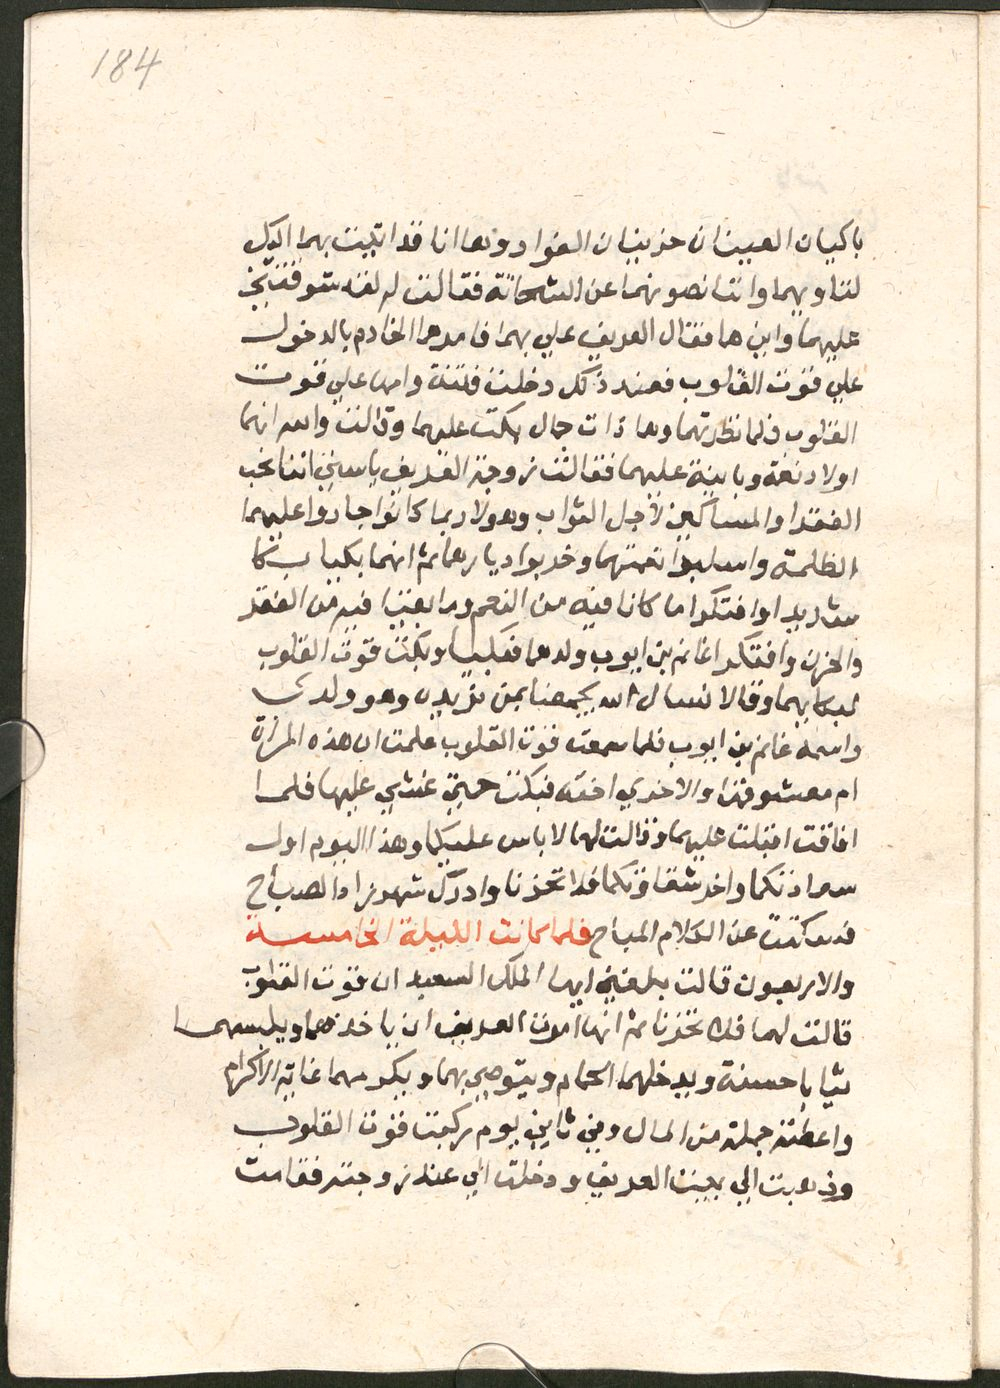 184
باكيان العينان حزينان الفواد وها انا قد اتيت بهما اليك
لتاويهما وانتا نصونهما عن الشحاتة فقالت له لقد شوقتني
عليهما واين هما فقال العريف علي بهما فامرهما الخادم بالدخول
علي قوت القلوب فعند ذلك دخلت فتنة وامها علي قوت
القلوب فلما نظرتهما وهما ذات جمال بكت عليهما وقالت والله انهما
اولاد نعمة وباينة عليهما فقالت زوجة العريف ياستي اننا نحب
الفقرا والمساكين لاجل الثواب وهولا ربما كانوا جاروا عليهما
الظلمة واسلبوا نعمتهما وخربوا ديارهما ثم انهما بكيا بكا
شديدا وافتكروا ما كانا فيه من النعم وما بقيا فيه من الفقر
والحزن وافتكرا غانم بن ايوب ولدهما فبكيا وبكت قوت القلوب
لبكايهما وقالا نسال الله يجمعنا بمن نريده وهو ولدي
واسمه غانم بن ايوب فلما سمعت قوت القلوب علمت ان هذه المراة
ام معشوقها والاخري اخته فبكت حتي غشي عليها فلما
افاقت اقبلت عليهما وقالت لهما لا باس عليكما وهذا اليوم اول
سعادتكما واخر شقاوتكما فلا تحزنا وادرك شهرزاد الصباح
فسكتت عن الكلام المباح فلما كانت الليلة الخامسة
والاربعون قالت بلغني ايها الملك السعيد ان قوت القلوب
قالت لهما فلا تحزنا ثم انها امرت العريف ان ياخدهما ويلبسهما
ثيابا حسنة ويدخلهما الحمام ويتوصي بهما ويكرمهما غاية الاكرام
واعطته جملة من المال وفي ثاني يوم ركبت قوت القلوب
وذهبت الي بيت العريف ودخلت الي عند زوجته فقامت